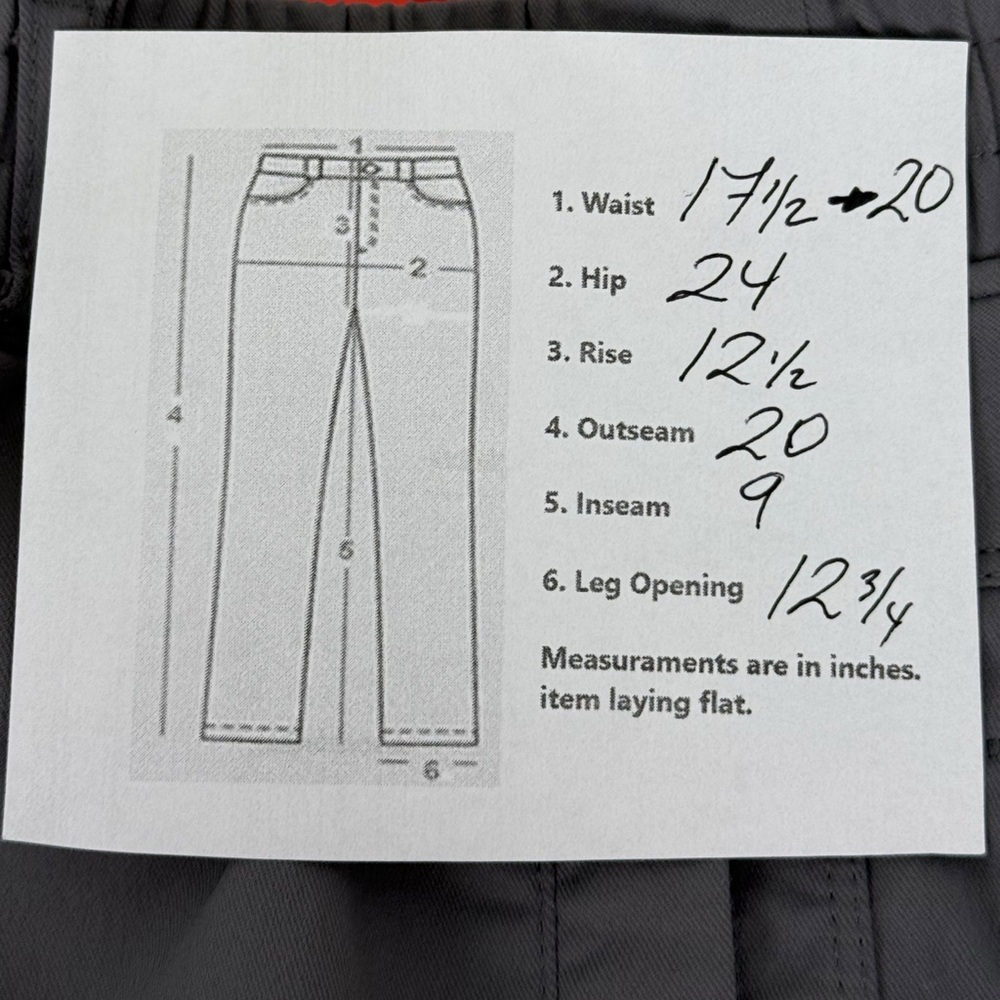 1
3
2
4
5
6
1. Waist 17 1/2 → 20
2. Hip 24
3. Rise 12 1/2
4. Outseam 20
5. Inseam 9
6. Leg Opening 12 3/4
Measuraments are in inches.
item laying flat.